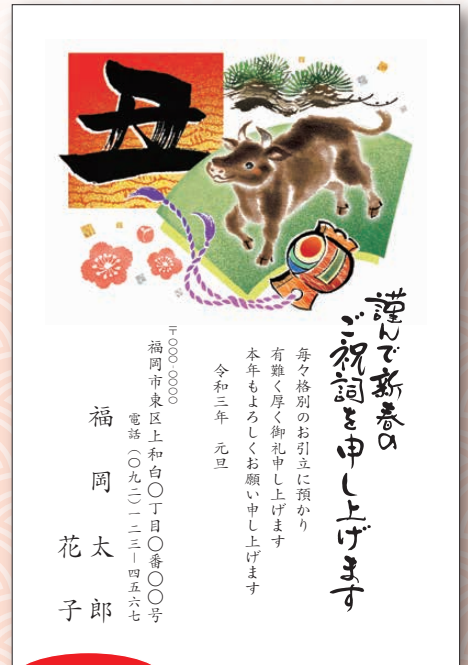 丑
謹んで新春の
ご祝詞を申し上げます
毎々格別のお引立に預かり
有難く厚く御礼申し上げます
本年もよろしくお願い申し上げます
令和三年 元旦
〒○○○-○○○○
福岡市東区上和白○丁目○番○○号
電話(○九二)一二三ー四五六七
福岡太郎
花子